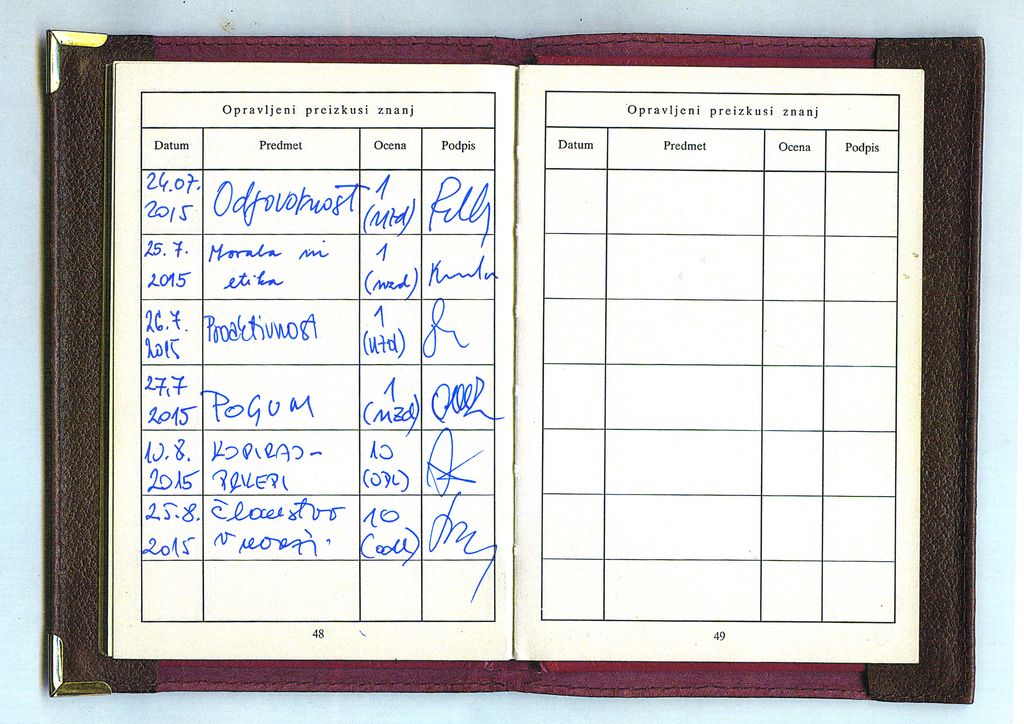 Opravljeni preizkusi znanj
Datum Predmet Ocena Podpis
24.07. 2015 Odgovornost 1 (nzd)
25.7. 2015 Morala in etika 1 (nzd)
26.7. 2015 Proaktivnost 1 (nzd)
27,7 2015 POGUM 1 (nzd)
10.8. 2015 KOPIRAJ- PRILEPI 10 (ODL)
25.8. 2015 članstvo v 10 (odl)
48
Opravljeni preizkusi znanj
Datum Predmet Ocena Podpis
49